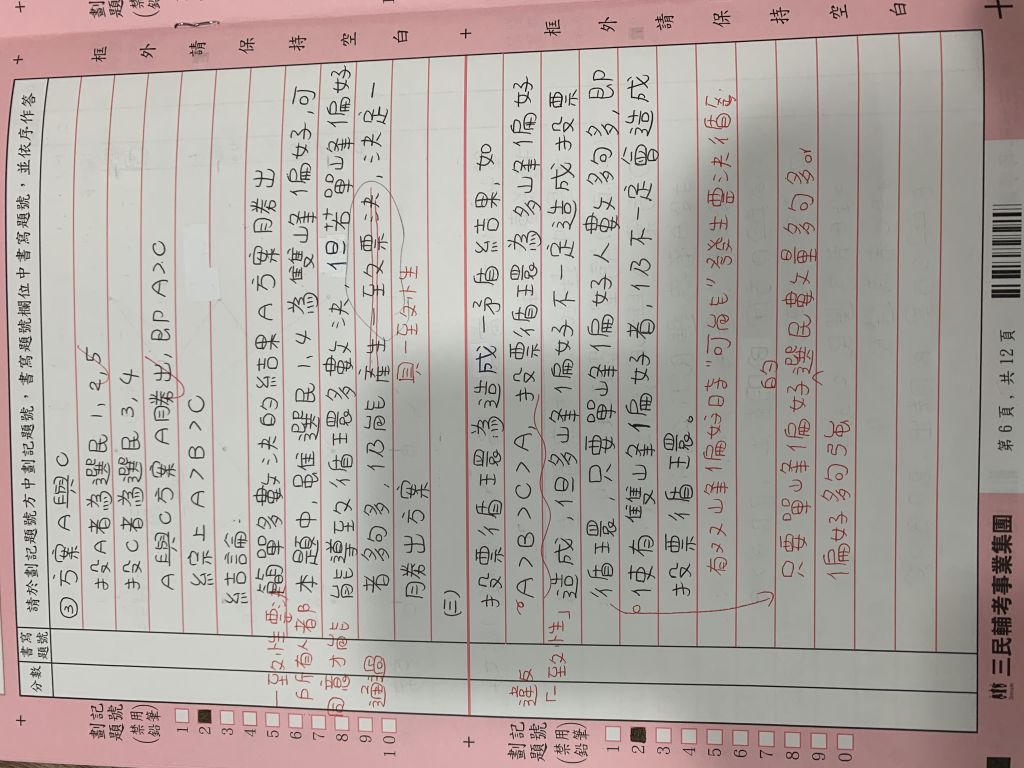 劃記題號(禁用鉛筆)
框外請保持空白
請於劃記題號方中劃記題號，書寫題號欄位中書寫題號，並依序作答
分數
書寫題號
③ 方案A與C
投A者為選民1,2,5
投C者為選民3,4
A與C方案A勝出,即A>C
綜上A>B>C
結論:
簡單多數決的結果A方案勝出
本題中,既選民1,4為雙峰偏好,可
能導致循環多數決,但若單峰偏好
者多句多,仍能產生一致票決,決定一
勝出方案
一致性票決
戶所有人者都
同意才能
通過
與一致性
1
2
3
4
5
6
7
8
9
10
框外請保持空白
劃記題號(禁用鉛筆)
(三)
投票循環為造成一矛盾結果,如
A>B>C>A,投票循環為多峰偏好
造成,但多峰偏好不一定造成投票
循環,只要單峰偏好人數多句多,即
使有雙峰偏好者,仍不一定會造成
投票循環。
違反
「一致性」
有双峰偏好時"可能"發生票決循環
只要單峰偏好的選民數量多句多or
偏好多句強
1
2
3
4
5
6
7
8
9
0
三民輔考事業集團
第6頁，共12頁